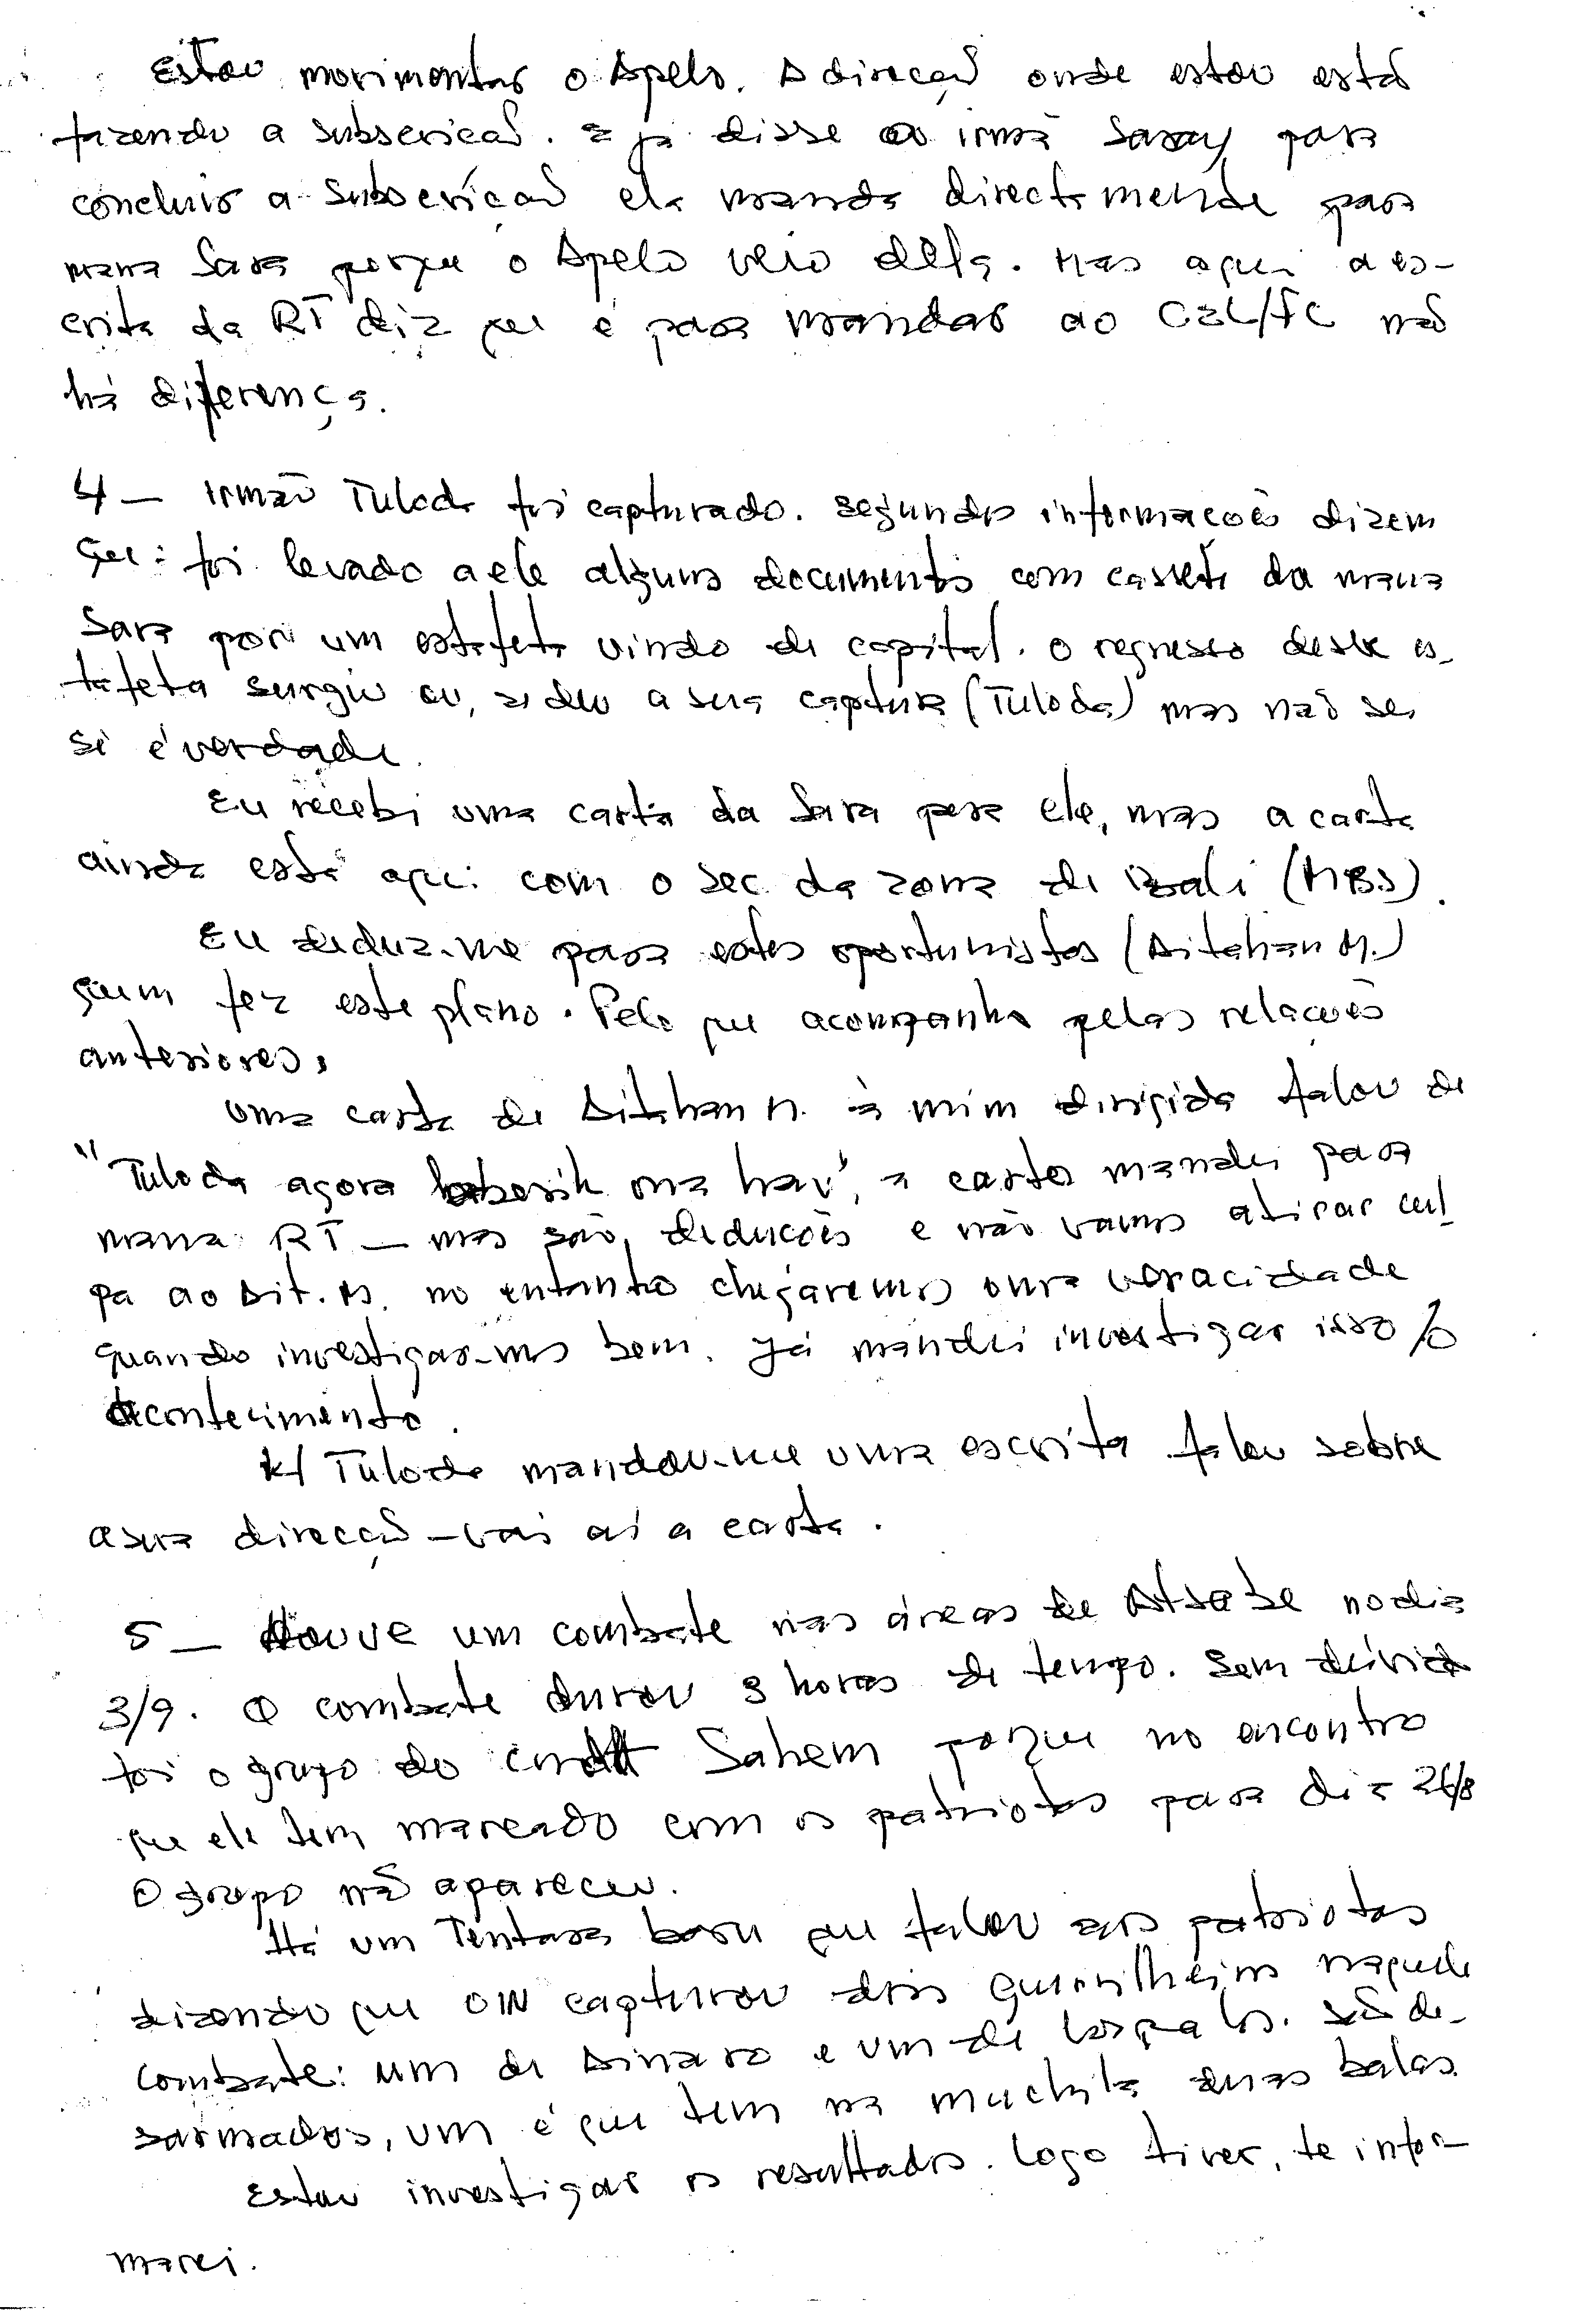 Estou movimentar o Apelo. A direcção onde estou está
fazendo a subscrição. E já disse ao irmã Saray para
concluir a subscrição ela manda directamente para
mana Sara porque o Apelo veio dela. Mas aqui a es-
crita da RT diz que é para mandar ao CEL/FC não
há diferença.
4 — Irmão Tuloda foi capturado. Segundo informações dizem
que: foi levado a ele alguns documentos com cassete da mana
Sara por um estafeta vindo de capital. O regresso deste es-
tafeta surgiu ou, se deu a sua captura (Tuloda) mas não sei
si é verdade.
Eu recebi uma carta da Sara para ele, mas a carta
ainda está aqui com o sec. da zona de (MBS).
Eu deduz-me para estes oportunistas (Aitahan M.)
quem fez este plano. Pelo que acompanho pelas relações
anteriores.
Uma carta de Aitahan M. à mim dirigida falou de
"Tuloda agora ona hau", a carta mandei para
mana RT — mas são, deduções e não vamos atirar cul-
pa ao Ait. M. no entanto chegaremos uma veracidade
quando investigar-mos bem. Já mandei investigar isso %
acontecimento.
K/ Tuloda mandou-me uma escrita falou sobre
a sua direcção — vai aí a carta.
5 — Houve um combate nas áreas de Atsabe no dia
3/9. O combate durou 3 horas de tempo. Sem dúvida
foi o grupo do cmdt Sahem porque no encontro
que ele tem marcado com os patriotas para dia 26/8
o grupo não apareceu.
Há um Tentara que falou aos patriotas
dizendo que OIN capturou dois guerrilheiros naquele
combate: um de Ainaro e um de Lospalos. São de-
sarmados, um é que tem na muchila duas balas.
Estou investigar os resultados. Logo tiver, te infor-
marei.